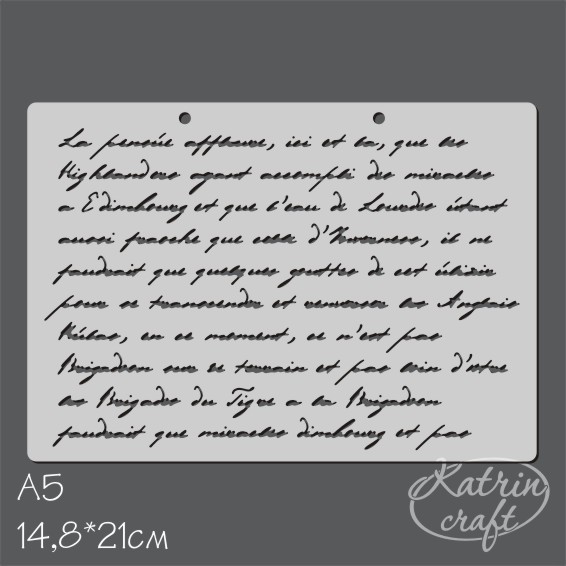 La pensée affleure, ici et la, que les
Highlanders ayant accompli des miracles
a Edimbourg et que l'eau de Lourdes étant
aussi fraiche que celle d'Inverness, il ne
faudrait que quelques gouttes de cet élixir
pour se transcender et renverser les Anglais
Hélas, en ce moment, ce n'est pas
Brigadoon sur ce terrain et pas loin d'etre
les Brigades du Tigre a la Brigadoon
faudrait que miracles dimbourg et pas
A5
14,8*21см
Katrin
craft